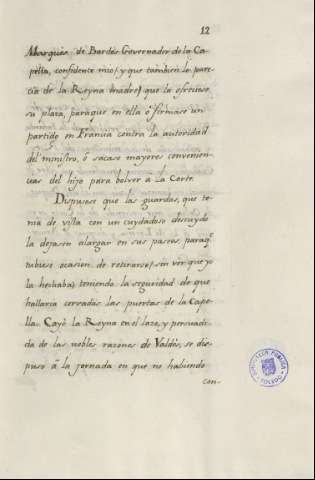 12
Marques de Bardes Governador de la Ca-
pella, confidente mio/ y que tambien le pare-
cia de la Reyna madre/ que la ofreciese
su plaza, paraque en ella ó firmase un
partido en Francia contra la autoridad
del ministro, ó sacase mayores convenien-
cias del hijo para bolver a la Corte.
Dispuse que las guardas, que te-
nia de vista con un cuydadoso descuydo
la dejasen alargar en sus paseos paraq.
tubiese ocasion de retirarse/ sin ver que yo
la hechaba/ teniendo la seguridad de que
hallaria cerradas las puertas de la Cape-
lla. Cayó la Reyna en el lazo, y persuadi-
da de las nobles razones de Valdés, se dis-
puso á la jornada en que no habiendo
con-
BIBLIOTECA PUBLICA
TOLEDO